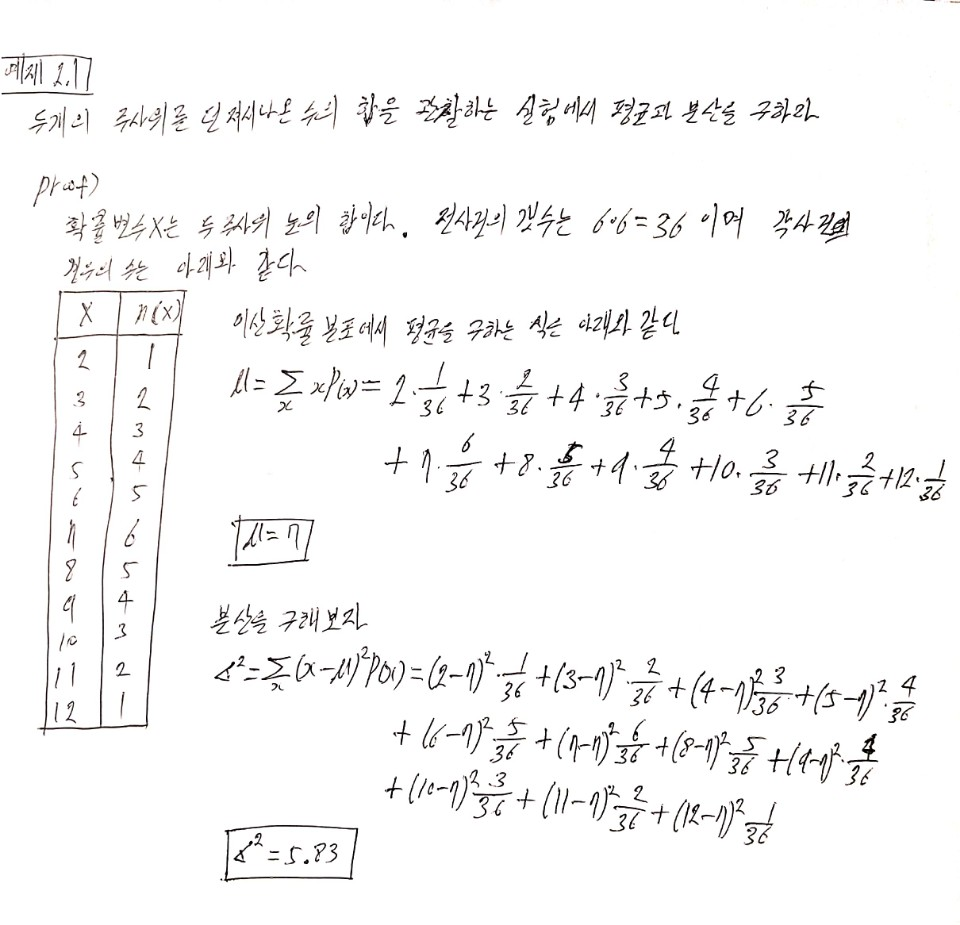 예제 2.1
두개의 주사위를 던져서나온 수의 합을 관찰하는 실험에서 평균과 분산을 구하라
proof)
확률변수X는 두 주사위 눈의 합이다. 전사건의 갯수는 6·6=36 이며 각사건의
경우의 수는 아래와 같다.
X n(X)
2 1
3 2
4 3
5 4
6 5
7 6
8 5
9 4
10 3
11 2
12 1
이산확률 분포에서 평균을 구하는 식은 아래와 같다
μ=∑ₓ xP(x)= 2·1/36 +3·2/36 +4·3/36 +5·4/36 +6·5/36
+7·6/36 +8·5/36 +9·4/36 +10·3/36 +11·2/36 +12·1/36
μ=7
분산을 구해보자
σ²=∑ₓ (x-μ)²P(x)=(2-7)²·1/36 +(3-7)²·2/36 +(4-7)²·3/36 +(5-7)²·4/36
+(6-7)²·5/36 +(7-7)²·6/36 +(8-7)²·5/36 +(9-7)²·4/36
+(10-7)²·3/36 +(11-7)²·2/36 +(12-7)²·1/36
σ²=5.83